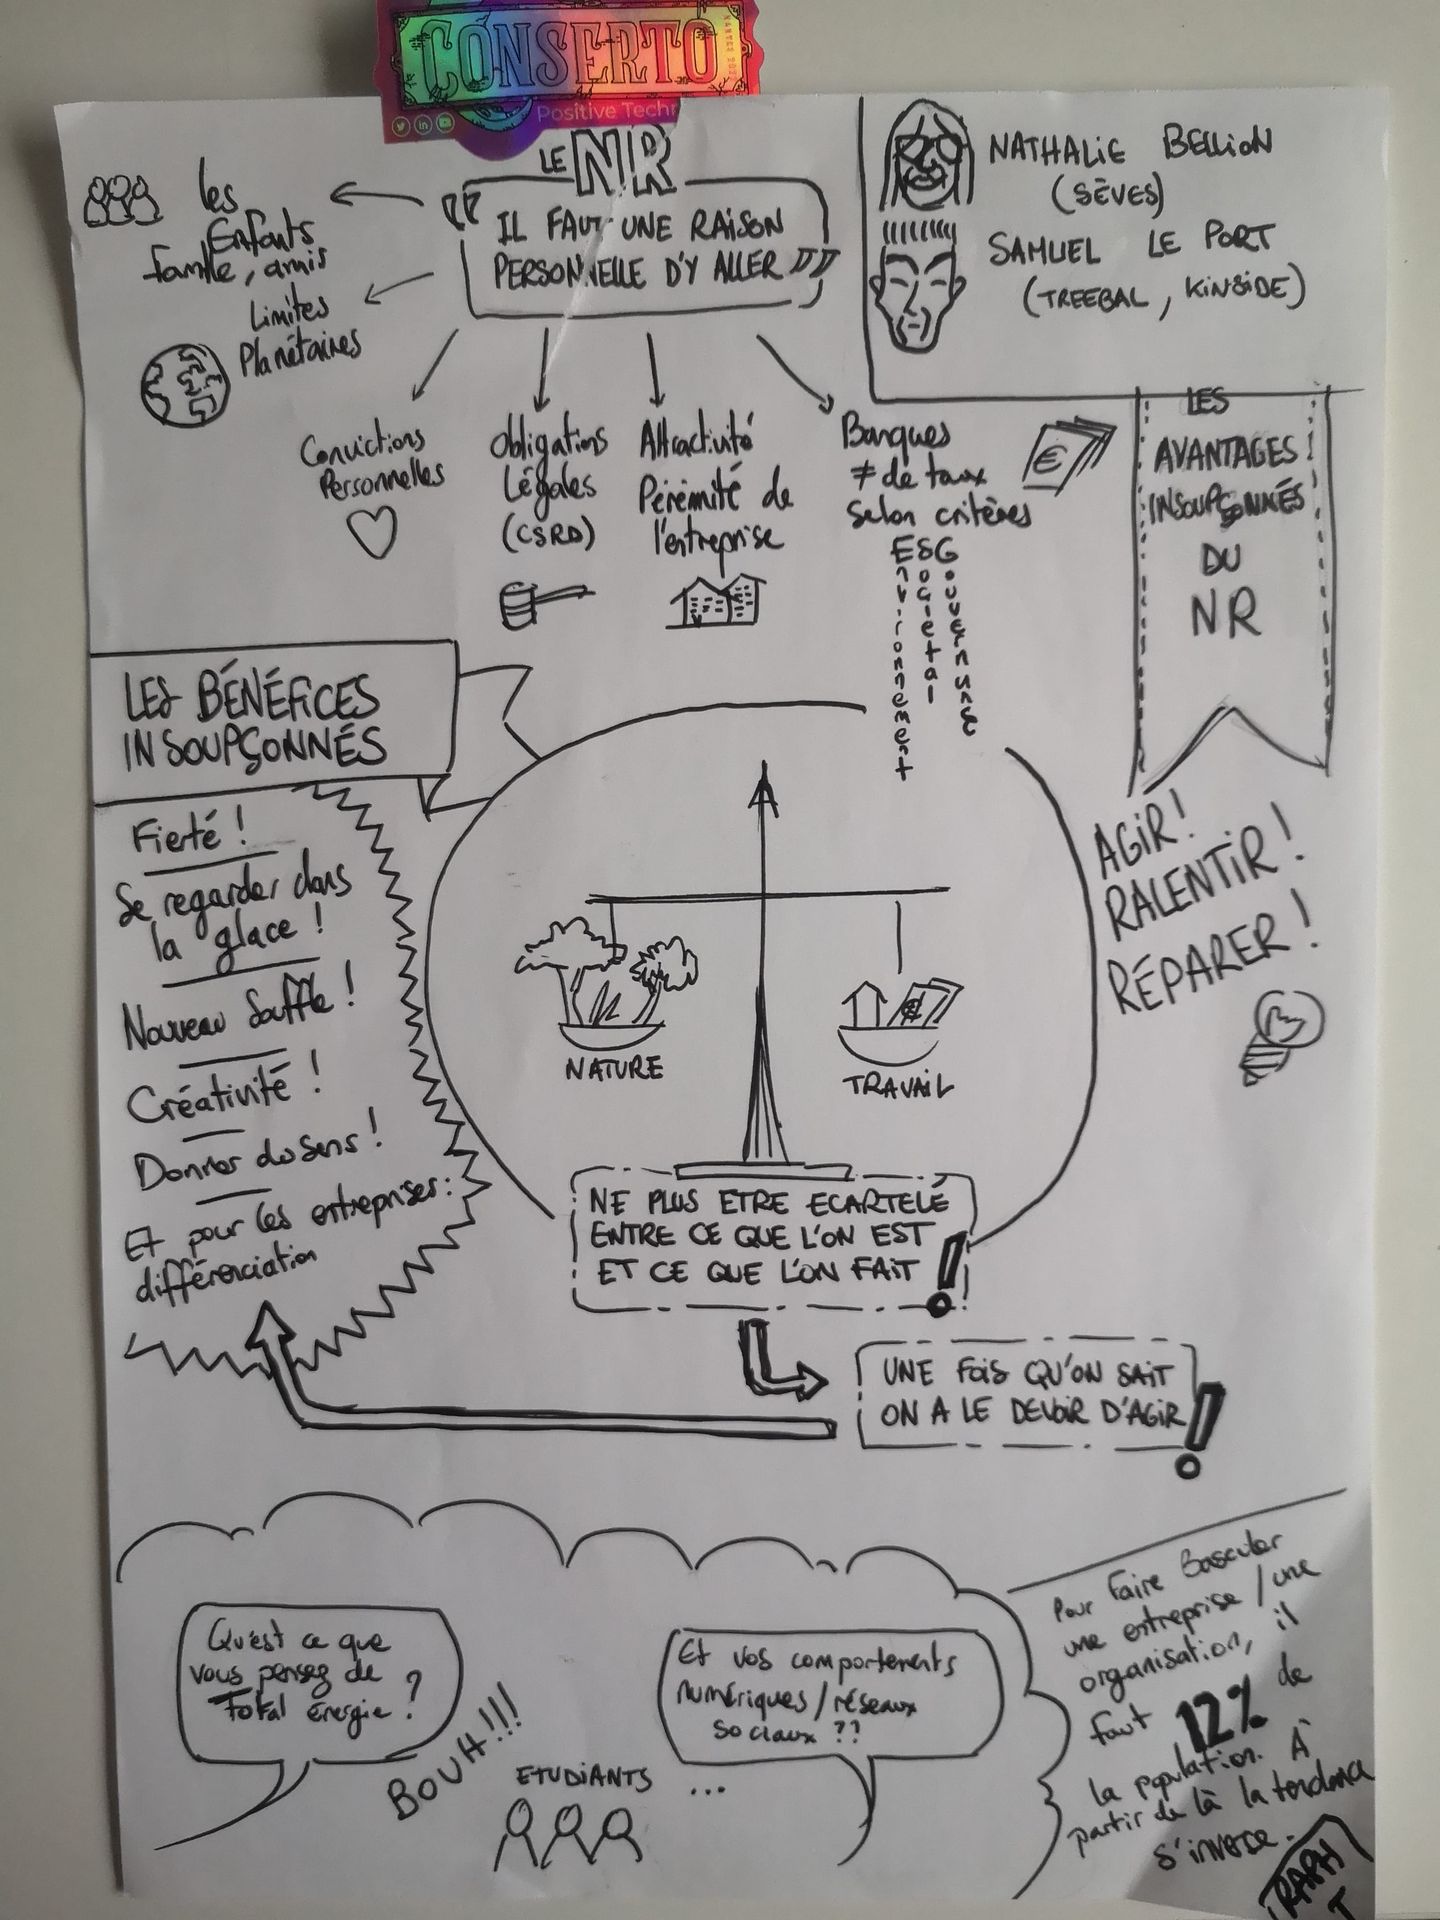 CONSERTO
NANTES
Positive Tech
LE NR
IL FAUT UNE RAISON
PERSONNELLE D'Y ALLER
NATHALIE BELLION
(SÈVES)
SAMUEL LE PORT
(TREEBAL, KINSIDE)
les
Enfants
famille, amis
Limites
Planétaires
Convictions
Personnelles
Obligations
Légales
(CSRD)
Attractivité
Pérénité de
l'entreprise
Banques
≠ de taux
selon critères
ESG
Environnement
Sociétal
Gouvernance
€
LES
AVANTAGES
INSOUPÇONNÉS
DU
NR
AGIR!
RALENTIR!
RÉPARER!
LES BÉNÉFICES
INSOUPÇONNÉS
Fierté !
Se regarder dans
la glace !
Nouveau Souffle !
Créativité !
Donner du sens !
Et pour les entreprises:
différenciation
NATURE
€
TRAVAIL
NE PLUS ETRE ECARTELÉ
ENTRE CE QUE L'ON EST
ET CE QUE L'ON FAIT !
UNE FOIS QU'ON SAIT
ON A LE DEVOIR D'AGIR !
Qu'est ce que
vous pensez de
Total énergie ?
BOUH!!!
ETUDIANTS ...
Et vos comportements
numériques/réseaux
sociaux ??
Pour faire basculer
une entreprise / une
organisation, il
faut 12% de
la population. À
partir de là la tendance
s'inverse.
RAPH
T